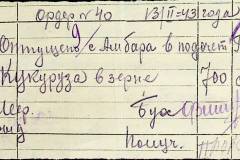 Ордер № 40 13/II=43 года
Отпущено с Амбара в подочет
Кукуруза в зерне 700
Бух
Получ.